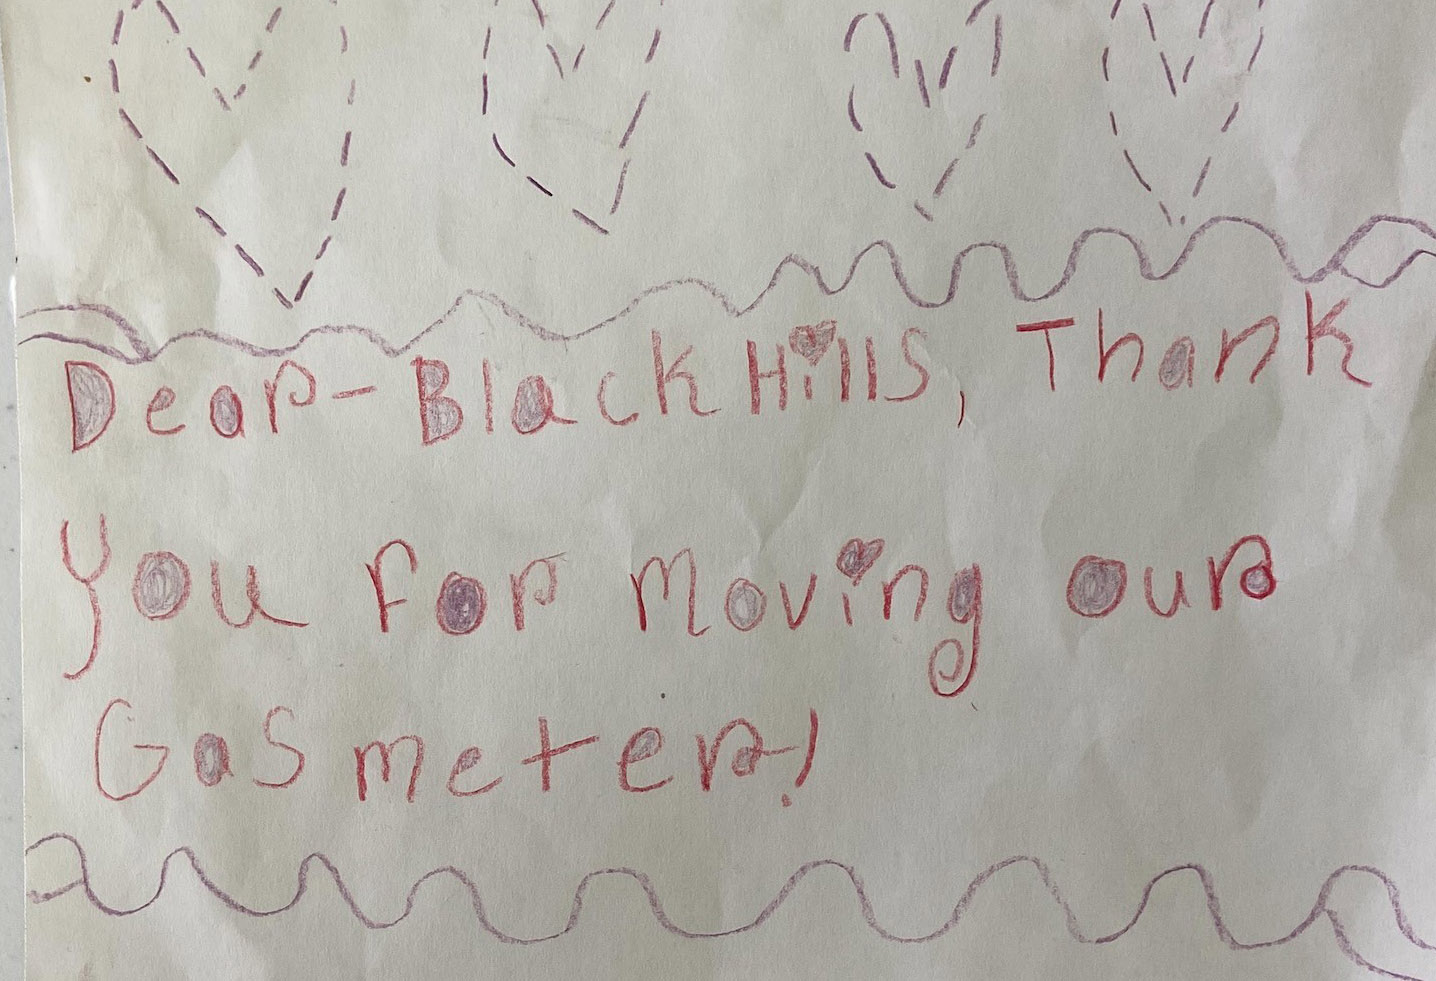 Dear-Black Hills, Thank
you for moving our
Gas meter!